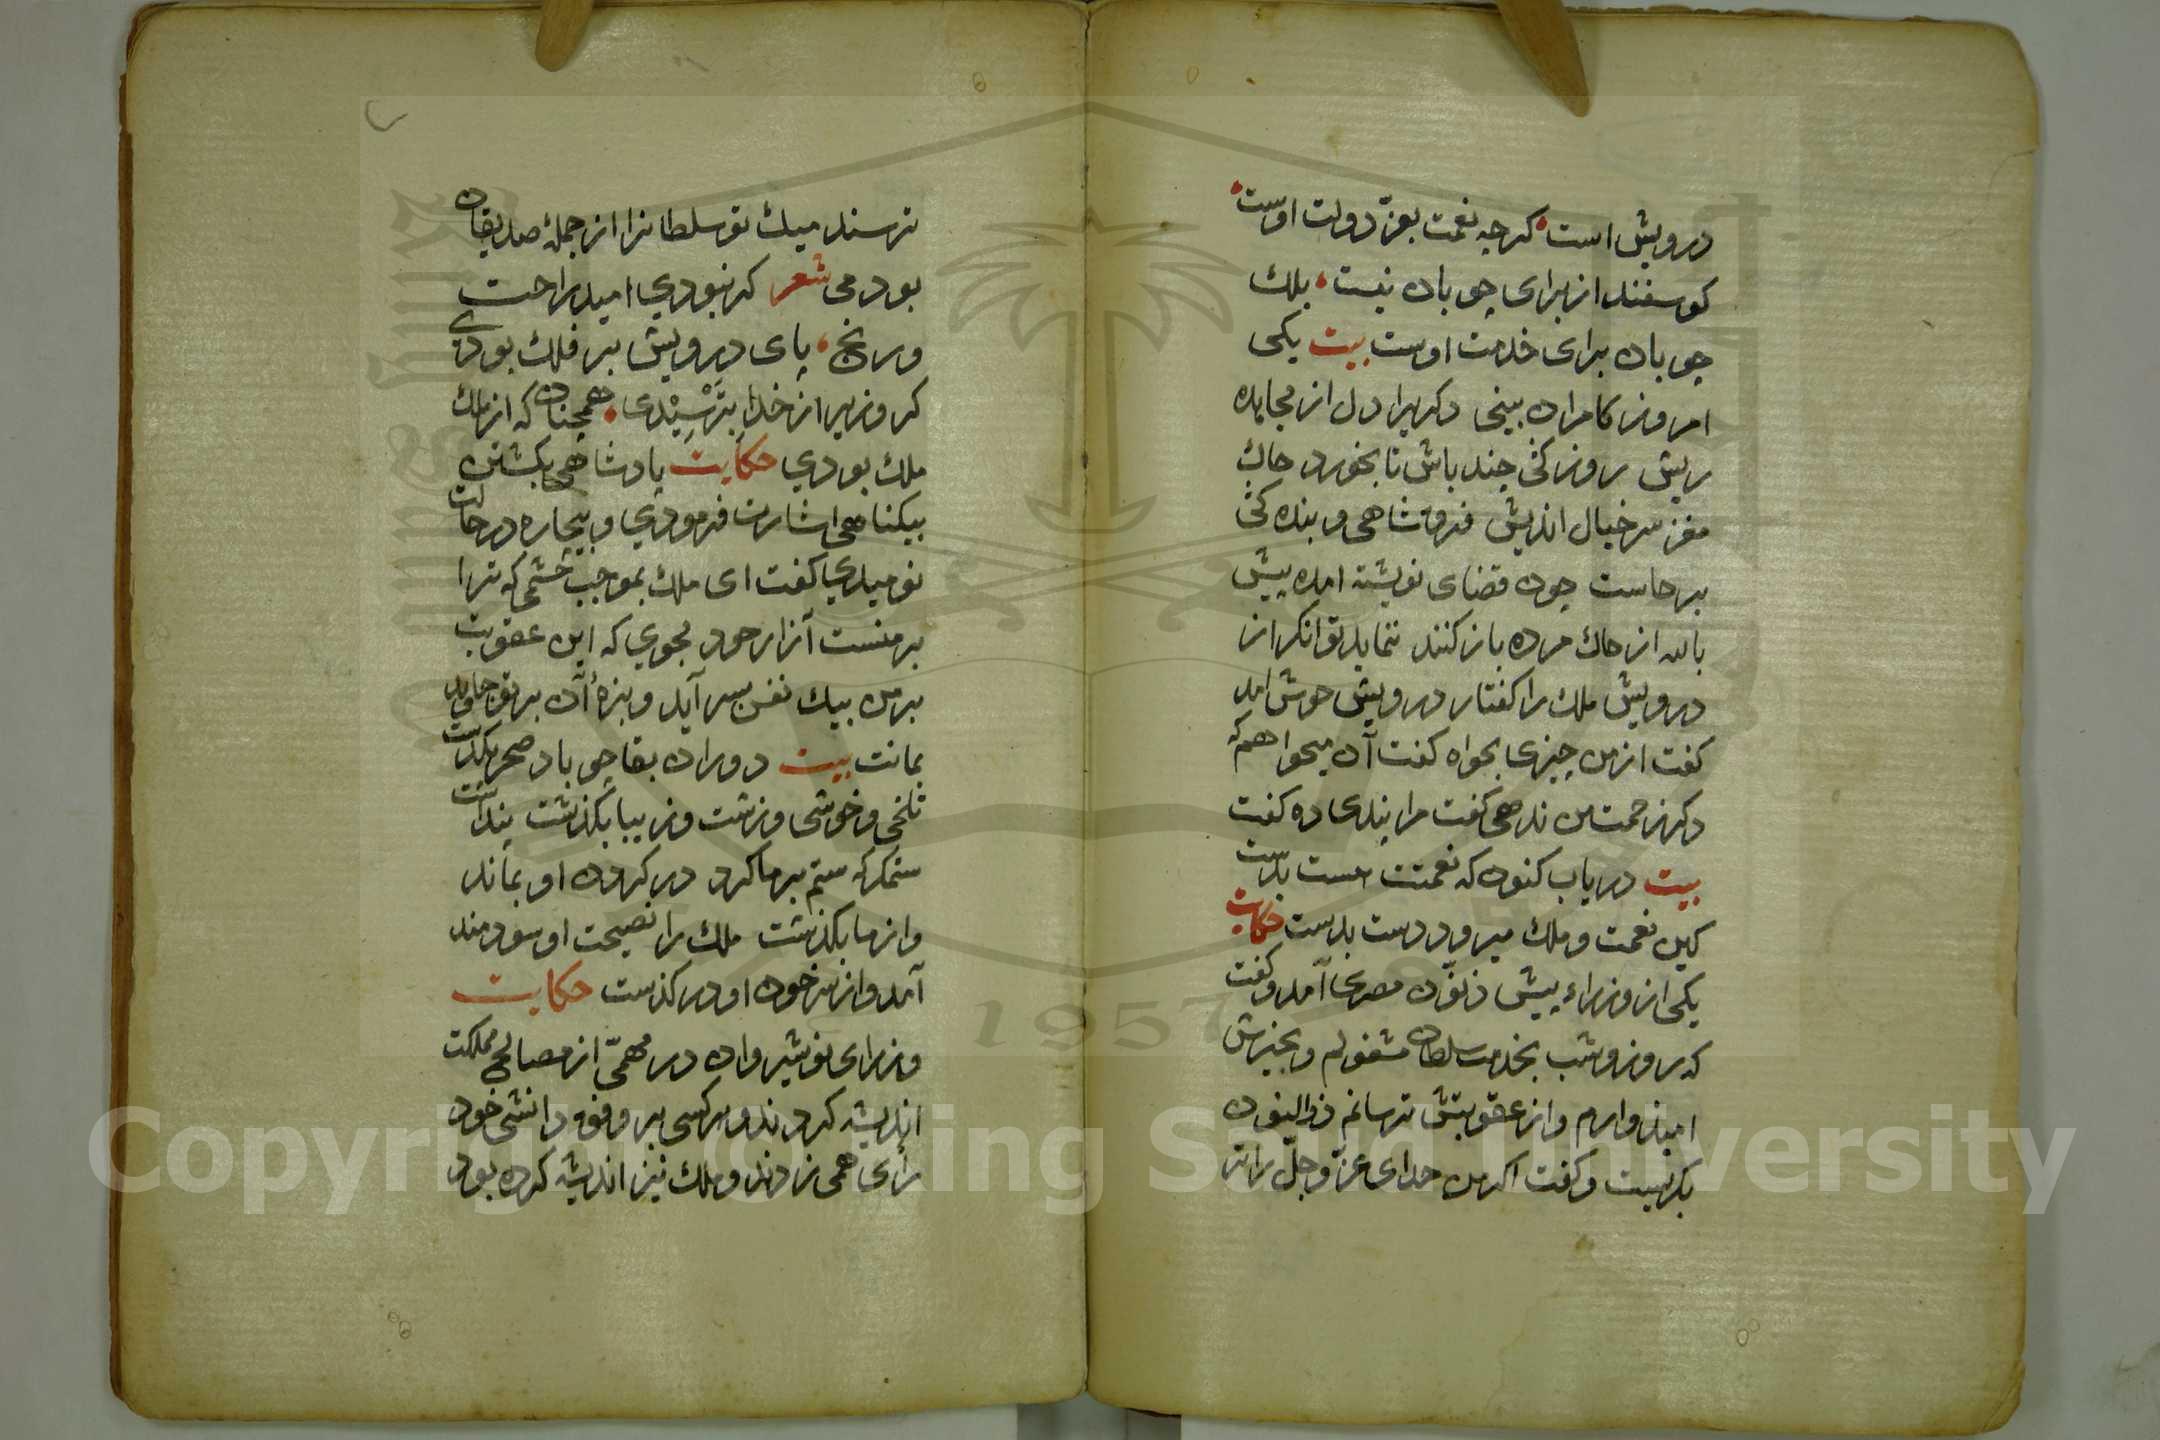 درویش است کرچه نعمت بعزّ دولت اوست
کوسفند از برای چوبان نیست بلك
چوبان برای خدمت اوست بیت یکی
امروز کامران بینی دکریرا دل از مجاهده
ریش روزکی چند باش تا بخورد خاك
مغز سر خیال اندیش فرق شاهی و بنده کی
برخاست چون قضای نوشته امد پیش
بالله از خاك مرده باز کنند ننماید توانکر از
درویش ملك را کفتار درویش خوش امد
کفت از من چیزی بخواه کفت آن میخواهم که
دکر زحمت من ندهی کفت مرا پندی ده کفت
بیت دریاب کنون که نعمتت هست بدست
کین نعمت و ملك میرود دست بدست حکایت
یکی از وزراء پیش ذنّون مصری آمد و کفت
که روز و شب بخدمت سلطان مشغولم و بخیرش
امیذوارم و از عقوبتش ترسانم ذوالنون
بکریست و کفت اکر من خدای عزّ و جلّ را تر
ترسند میك تو سلطانرا از جملهٔ صدیقان
بودمی شعر کر نبودی امید راحت
و رنج پای درویش بر فلك بودی
کر وزیر از خدا بترسیدی همچنان که از ملك
ملك بودی حکایت پادشاهی بکشتن
بیکناهی اشارت فرمودی و بیچاره در حالت
نومیدی کفت ای ملك بموجب خشمی که ترا
بر منست آزار خود مجوی که این عقوبت
بر من بیك نفس سر آید و بزهٔ آن بر تو جاوید
بمانت بیت دوران بقا چو باد صحرا بکذشت
تلخی و خوشی و زشت و زیبا بکذشت پنداشت
ستمکر که ستم بر ما کرد در کردن او بماند
و از ما بکذشت ملك را نصیحت او سودمند
آمد و از سر خون او در کذست حکایت
وزرای نوشیروان در مهمّی از مصالح مملکت
اندیشه کردند و هر کسی بر وفق دانشی خود
رأی همی زدند و ملك نیز اندیشه کرده بود
1957
Copyright © King Saud University